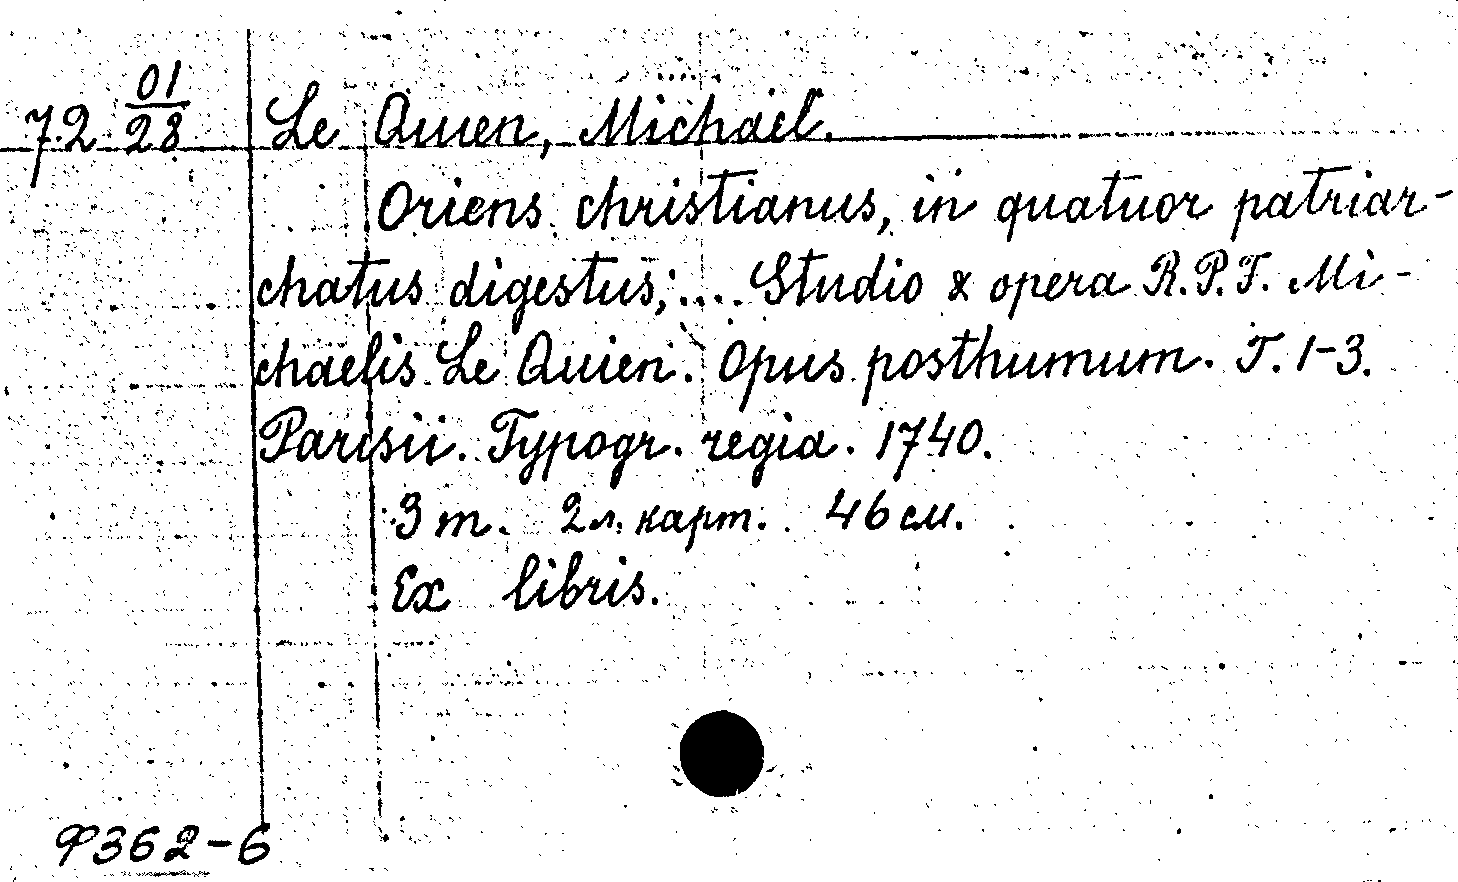 72 01/28 Le Quien, Michaël.
Oriens christianus, in quatuor patriar-
chatus digestus;.... Studio & opera R.P.F. Mi-
chaelis Le Quien. Opus posthumum. T. 1-3.
Parisii. Typogr. regia. 1740.
3 т. 2 л. карт. 46 см.
Ex libris.
Ф362-6